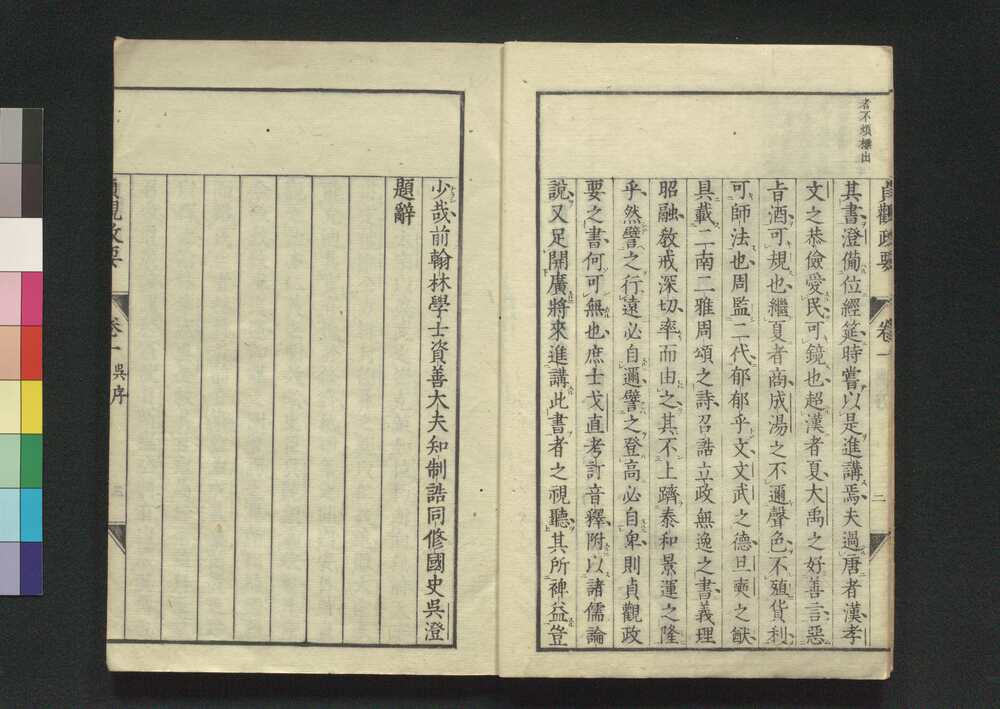 者不煩標出
貞觀政要
卷一
二
其書澄備位經筵時嘗以是進講焉夫過唐者漢孝
文之恭儉愛民可鏡也超漢者夏大禹之好善言惡
旨酒可規也繼夏者商成湯之不邇聲色不殖貨利
可師法也周監二代郁郁乎文文武之德旦奭之猷
具載二南二雅周頌之詩召誥立政無逸之書義理
昭融敎戒深切率而由之其不上躋泰和景運之隆
乎然譬之行遠必自邇譬之登高必自卑則貞觀政
要之書何可無也庶士戈直考訂音釋附以諸儒論
說又足開廣將來進講此書者之視聽其所裨益豈
少哉前翰林學士資善大夫知制誥同脩國史吳澄
題辭
貞觀政要
卷一
吳序